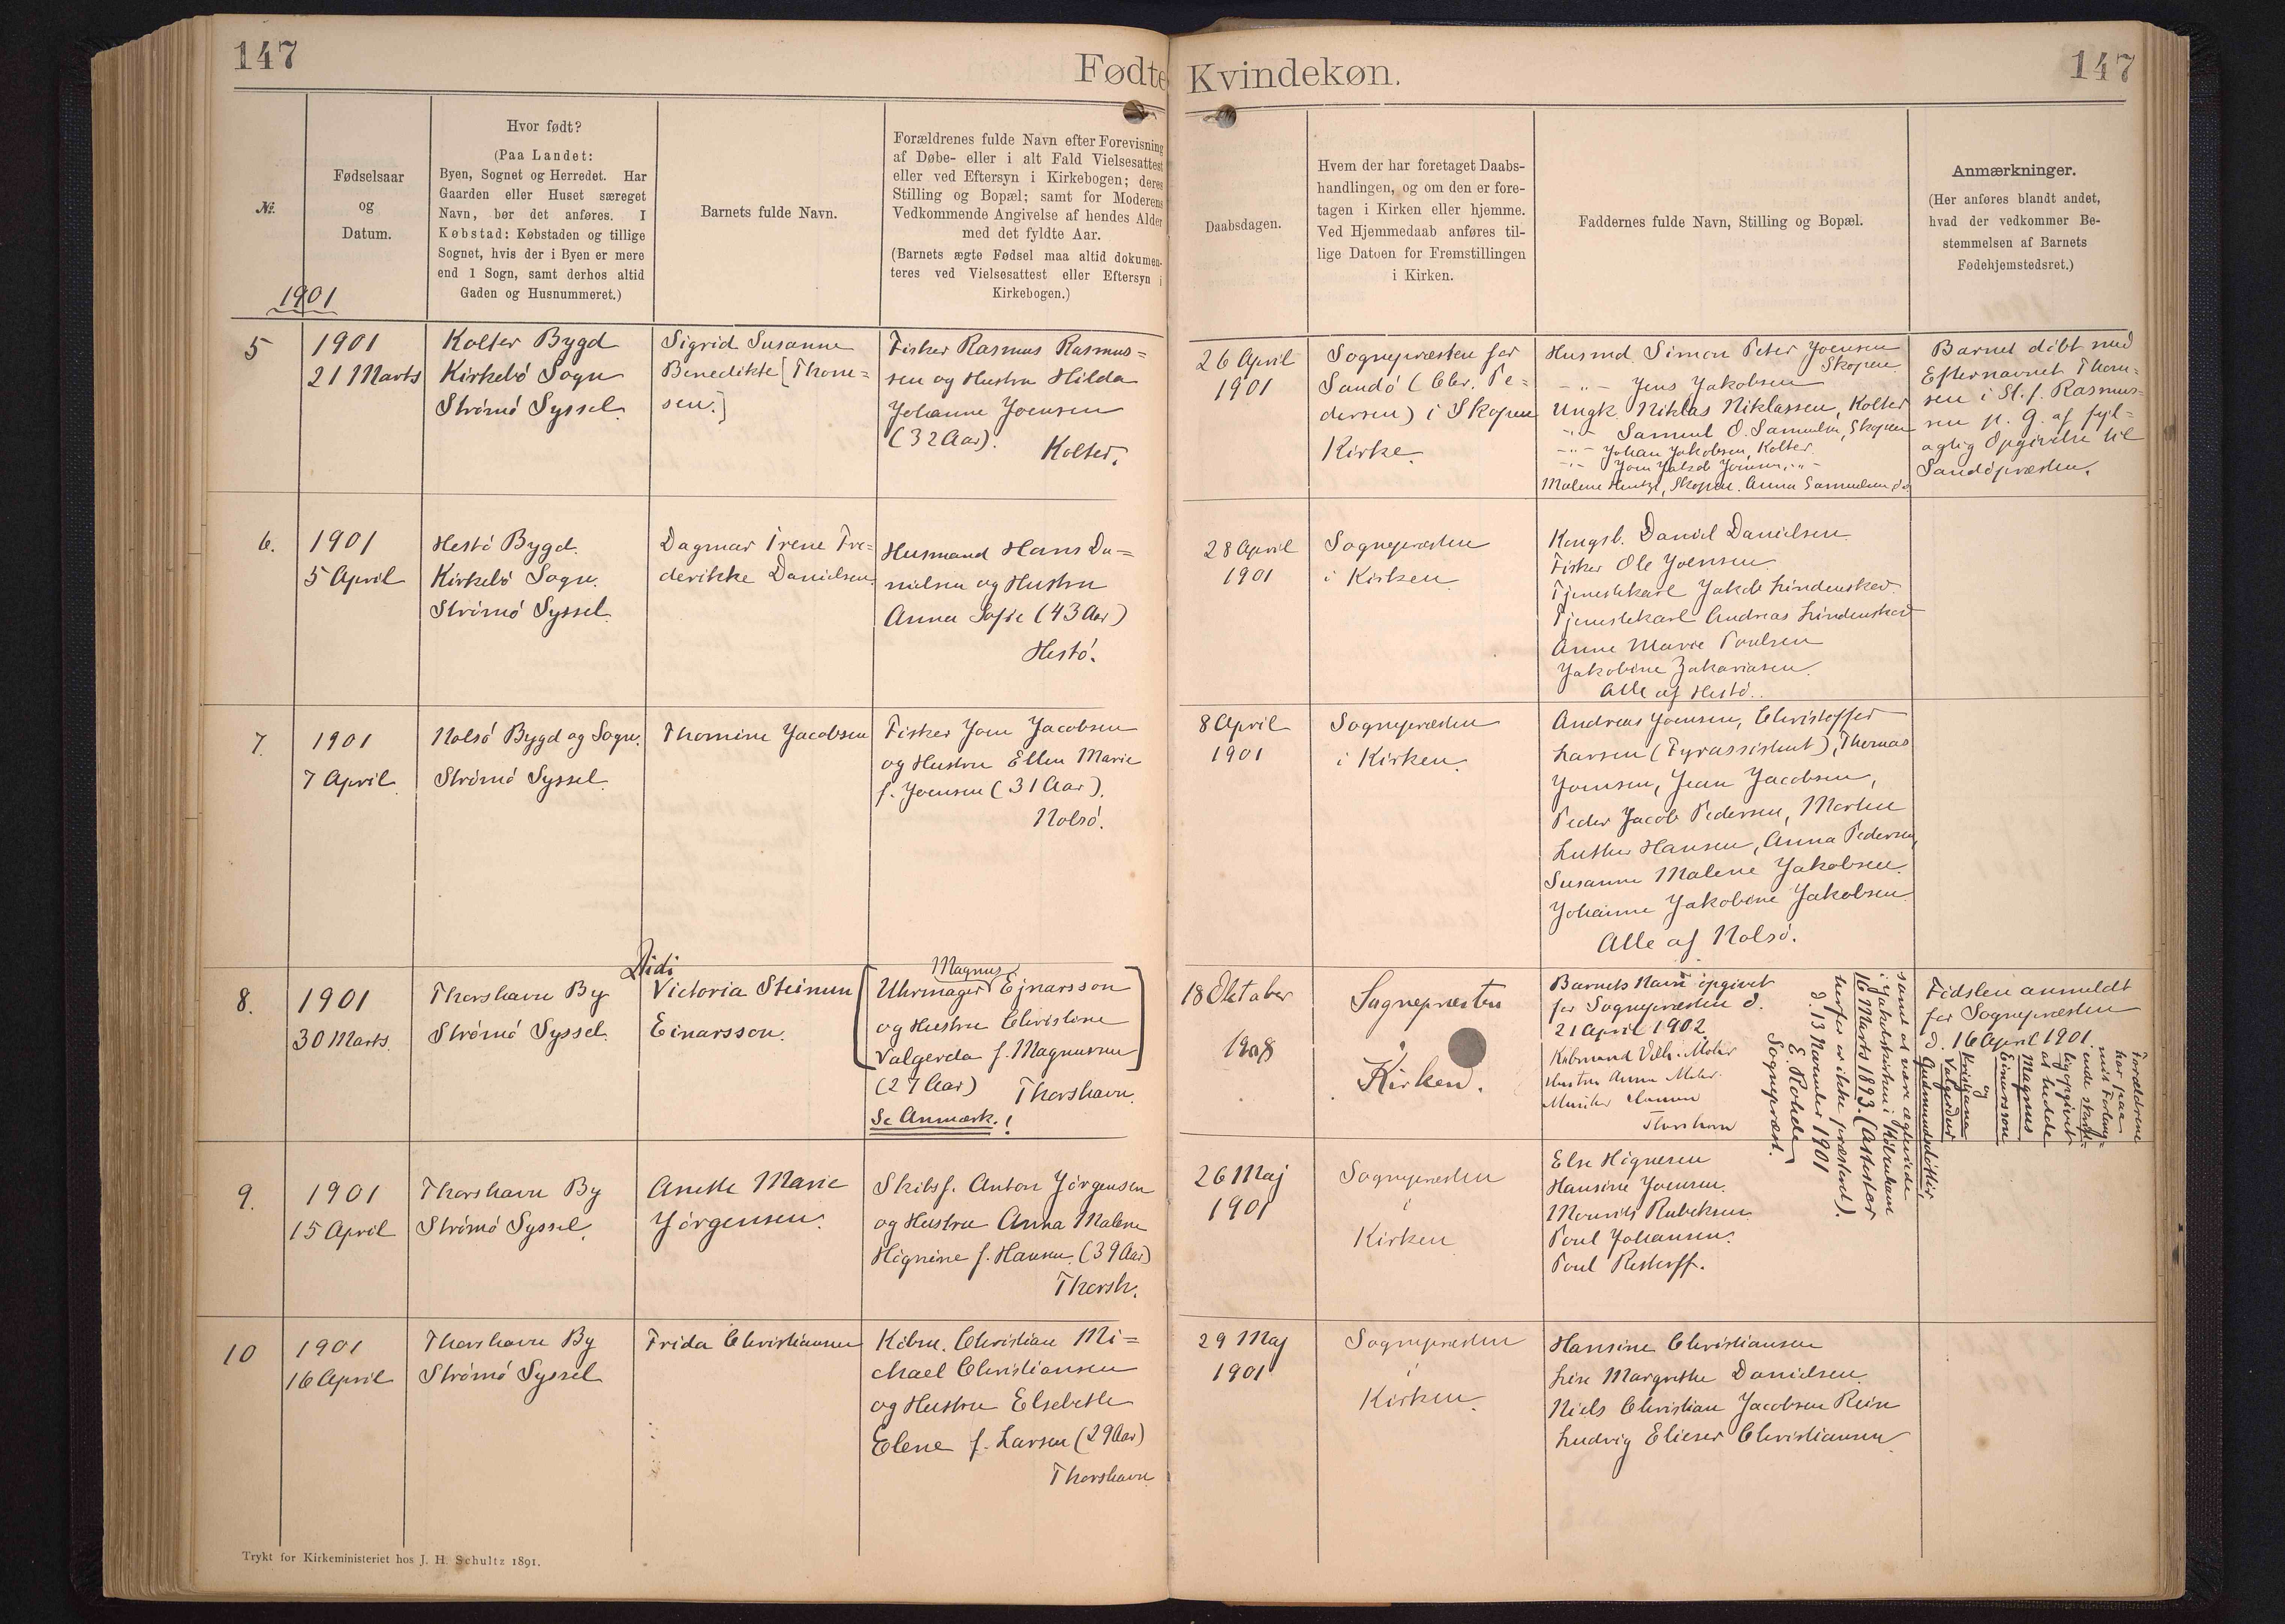 147
Fødte
Kvindekøn.
147
№.
Fødselsaar
og
Datum.
Hvor født?
(Paa Landet:
Byen, Sognet og Herredet. Har
Gaarden eller Huset særeget
Navn, bør det anføres. I
Købstad: Købstaden og tillige
Sognet, hvis der i Byen er mere
end 1 Sogn, samt derhos altid
Gaden og Husnummeret.)
Barnets fulde Navn.
Forældrenes fulde Navn efter Forevisning
af Døbe- eller i alt Fald Vielsesattest
eller ved Eftersyn i Kirkebogen; deres
Stilling og Bopæl; samt for Moderens
Vedkommende Angivelse af hendes Alder
med det fyldte Aar.
(Barnets ægte Fødsel maa altid dokumen-
teres ved Vielsesattest eller Eftersyn i
Kirkebogen.)
Daabsdagen.
Hvem der har foretaget Daabs-
handlingen, og om den er fore-
tagen i Kirken eller hjemme.
Ved Hjemmedaab anføres til-
lige Datoen for Fremstillingen
i Kirken.
Faddernes fulde Navn, Stilling og Bopæl.
Anmærkninger.
(Her anføres blandt andet,
hvad der vedkommer Be-
stemmelsen af Barnets
Fødehjemstedsret.)
1901
5
1901
21 Marts
Kolter Bygd
Kirkebö Sogn
Strömö Syssel.
Sigrid Susanne
Benedikte [Thom-
sen.]
Fisker Rasmus Rasmus=
sen og Hustru Hilda
Johanne Joensen
(32 Aar).
Kolter.
26 April
1901
Sognepræsten for
Sandö (Chr. Pe=
dersen) i Skopen
Kirke.
Husmd. Simon Peter Joensen
Skopen
-"- Jens Jakobsen
Ungk. Niklas Niklassen, Kolter
-"- Samuel O. Samuelsen, Skopen
-"- Johan Jakobsen, Kolter.
-"- Jom Jakob Joensen, -"-
Malene Hentze, Skopen. Anna Samuelsen do
Barnet döbt med
Efternavnet Thom=
sen i St. f. Rasmus-
sen p. G. af fejl=
agtig Opgivelse til
Sandöpræsten.
6.
1901
5 April
Hestö Bygd.
Kirkebö Sogn.
Strömö Syssel.
Dagmar Irene Fre=
derikke Danielsen.
Husmand Hans Da=
nielsen og Hustru
Anna Sofie (43 Aar)
Hestö.
28 April
1901
Sognepræsten
i Kirken.
Kongsb. Daniel Danielsen
Fisker Ole Joensen.
Tjenestekarl Jakob Lindenskov.
Tjenestekarl Andreas Lindenskov
Anne Marie Poulsen
Jakobine Zakariasen.
Alle af Hestö.
7.
1901
7 April
Nolsö Bygd og Sogn.
Strömö Syssel.
Thomine Jacobsen
Fisker Jom Jacobsen
og Hustru Ellen Marie
f. Joensen (31 Aar).
Nolsö.
8 April
1901
Sognepræsten
i Kirken.
Andreas Joensen, Christoffer
Larsen (Fyrassistent), Thomas
Joensen, Jean Jacobsen,
Peder Jacob Pedersen, Morten
Luther Hansen, Anna Pedersen,
Susanne Malene Jakobsen.
Johanne Jakobine Jakobsen.
Alle af Nolsö.
8.
1901
30 Marts.
Thorshavn By
Strömö Syssel.
Didi
Victoria Steinun
Einarsson.
Magnus
Uhrmager Ejnarsson
og Hustru Christine
Valgerda f. Magnussen
(27 Aar)
Thorshavn.
Se Anmærk.!
18 Oktober
1908
Sognepræsten
i
Kirken.
Barnets Navn opgivet
for Sognepræsten d.
21 April 1902
Köbmand Vilh. Mohr
Hustru Anna Mohr
Thorshavn
Födslen anmeldt
for Sognepræsten
d. 16 April 1901.
Forældrene
har paa
mit Forlang=
ende skrift=
lig opgivet
at hedde
Magnus
Einarsson
og
Kristjana
Valgerdur
Gudmundsdóttir
samt at være ægteviede
i Jakobskirken i Köbenhavn
16 Marts 1893. (Attester
herfor er ikke præsteret).
d. 13 November 1901
E. Rohde
Sognepræst.
9.
1901
15 April
Thorshavn By
Strömö Syssel.
Anette Marie
Jörgensen.
Skibsf. Anton Jörgensen
og Hustru Anna Malene
Högnine f. Hansen. (39 Aar)
Thorsh.
26 Maj
1901
Sognepræsten
i
Kirken
Else Högnesen
Hansine Joensen.
Mourits Rubeksen
Poul Johansen.
Poul Restorff.
10
1901
16 April
Thorshavn By
Strömö Syssel
Frida Christiansen
Köbm. Christian Mi=
chael Christiansen
og Hustru Elsebeth
Elene f. Larsen (29 Aar)
Thorshavn
29 Maj
1901
Sognepræsten
i
Kirken.
Hansine Christiansen
Lise Margrethe Danielsen.
Niels Christian Jacobsen Rein
Ludvig Elieser Christiansen
Trykt for Kirkeministeriet hos J. H. Schultz 1891.